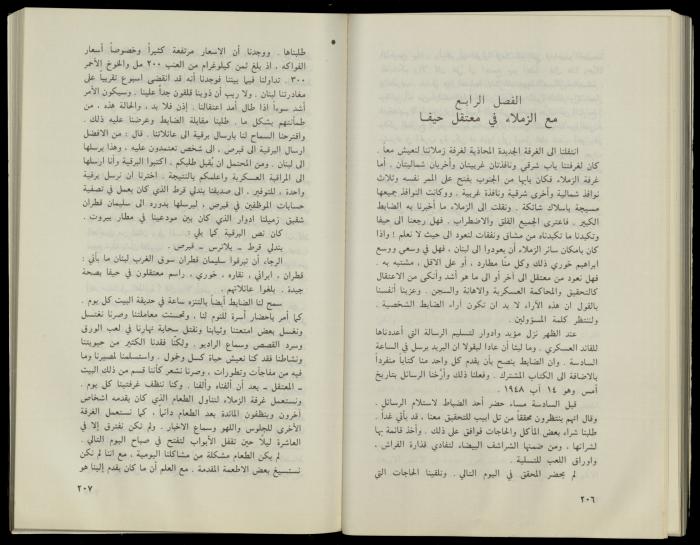 الفصل الرابع
مع الزملاء في معتقل حيفا
انتقلنا الى الغرفة الجديدة المحاذية لغرفة زملائنا لنعيش معاً .
كان لغرفتنا باب شرقي ونافذتان غربيتان وأخريان شماليتان . أما
غرفة الزملاء فكان بابها من الجنوب يفتح على الممر نفسه وثلاث
نوافذ شمالية وأخرى شرقية ونافذة غربية . وكانت النوافذ جميعها
مسيجة باسلاك شائكة . ونقلت الى الزملاء ما أخبرنا به الضابط
الكبير . فاعترى الجميع القلق والاضطراب . فهل رجعنا الى حيفا
وتكبدنا ما تكبدناه من مشاق ونفقات لنعود الى حيث لا نعلم ! واذا
كان بامكان سائر الزملاء أن يعودوا الى لبنان ، فهل في وسعي ووسع
ابراهيم خوري ذلك وكل منّا مطارد ، أو على الاقل ، مشتبه به .
فهل نعود من معتقل الى آخر أو الى ما هو أشد وأنكى من الاعتقال
كالتحقيق والمحاكمة العسكرية والاهانة والسجن . وعزينا أنفسنا
بالقول ان هذه الآراء لا بد ان تكون آراء الضابط الشخصية .
ولننتظر كلمة المسؤولين .
عند الظهر نزل مؤيد وادوار لتسليم الرسالة التي أعددناها
للقائد العسكري . وما لبثا أن عادا ليقولا ان البريد يرسل في الساعة
السادسة . وان الضابط ينصح بأن يقدم كل واحد منا كتاباً منفرداً
بالاضافة الى الكتاب المشترك . وفعلنا ذلك وأرّخنا الرسائل بتاريخ
أمس وهو ١٤ آب ١٩٤٨ .
قبل السادسة مساء حضر أحد الضباط لاستلام الرسائل .
وقال انهم ينتظرون محققاً من تل ابيب للتحقيق معنا ، قد يأتي غداً .
طلبنا شراء بعض المآكل والحاجات فوافق على ذلك . وأخذ قائمة بها
لشرائها ، ومن ضمنها الشراشف البيضاء لتفادي قذارة الفراش ،
واوراق اللعب للتسلية .
لم يحضر المحقق في اليوم التالي . وتلقينا الحاجات التي
٢٠٦
طلبناها . ووجدنا أن الاسعار مرتفعة كثيراً وخصوصاً أسعار
الفواكه ، اذ بلغ ثمن كيلوغرام من العنب ٢٠٠ مل والخوخ الأحمر
٣٠٠ . تداولنا فيما بيننا فوجدنا أنه قد انقضى اسبوع تقريباً على
مغادرتنا لبنان . ولا ريب أن ذوينا قلقون جداً علينا . وسيكون الأمر
أشد سوءاً اذا طال أمد اعتقالنا . إذن فلا بد ، والحالة هذه ، من
طمأنتهم بشكل ما . طلبنا مقابلة الضابط وعرضنا عليه ذلك .
واقترحنا السماح لنا بارسال برقية الى عائلاتنا . قال : من الافضل
ارسال البرقية الى قبرص ، الى شخص تعتمدون عليه ، وهذا يرسلها
الى لبنان . ومن المحتمل ان يُقبل طلبكم . اكتبوا البرقية وأنا ارسلها
الى المراقبة العسكرية واعلمكم بالنتيجة . اخترنا ان نرسل برقية
واحدة ، للتوفير . الى صديقنا بندلي قرط الذي كان يعمل في تصفية
حسابات الموظفين في قبرص ، ليرسلها بدوره الى سليمان قطران
شقيق زميلنا ادوار الذي كان بين مودعينا في مطار بيروت .
كان نص البرقية كما يلي :
بندلي قرط ـ بلاترس ـ قبرص .
الرجاء أن تبرقوا سليمان قطران سوق الغرب لبنان ما يأتي :
قطران ، ايراني ، نقاره ، خوري ، راسم معتقلون في حيفا بصحة
جيدة . بلغوا عائلاتهم .
سمح لنا الضابط أيضاً بالتنزه ساعة في حديقة البيت كل يوم .
كما أمر باحضار أسرة للنوم لنا . وتحسنت معاملتنا وصرنا نغتسل
ونغسل بعض امتعتنا وثيابنا ونقتل سحابة نهارنا في لعب الورق
وسرد القصص وسماع الراديو . ولكنّا فقدنا الكثير من حيويتنا
ونشاطنا فقد كنا نعيش حياة كسل وخمول . واستسلمنا لمصيرنا وما
فيه من مفاجآت وتطورات ، وصرنا نشعر كأننا قسم من ذلك البيت
ـ المعتقل ـ بعد أن ألفناه وألفنا . وكنا ننظف غرفتينا كل يوم .
ونستعمل غرفة الزملاء لتناول الطعام الذي كان يقدمه اشخاص
آخرون وينظفون المائدة بعد الطعام دائماً ، كما نستعمل الغرفة
الأخرى للجلوس واللهو وسماع الاخبار . ولم نكن نفترق إلا في
العاشرة ليلاً حين تقفل الأبواب لتفتح في صباح اليوم التالي .
لم يكن الطعام مشكلة من مشاكلنا اليومية ، مع اننا لم نكن
نستسيغ بعض الاطعمة المقدمة . مع العلم أن ما كان يقدم إلينا هو
٢٠٧